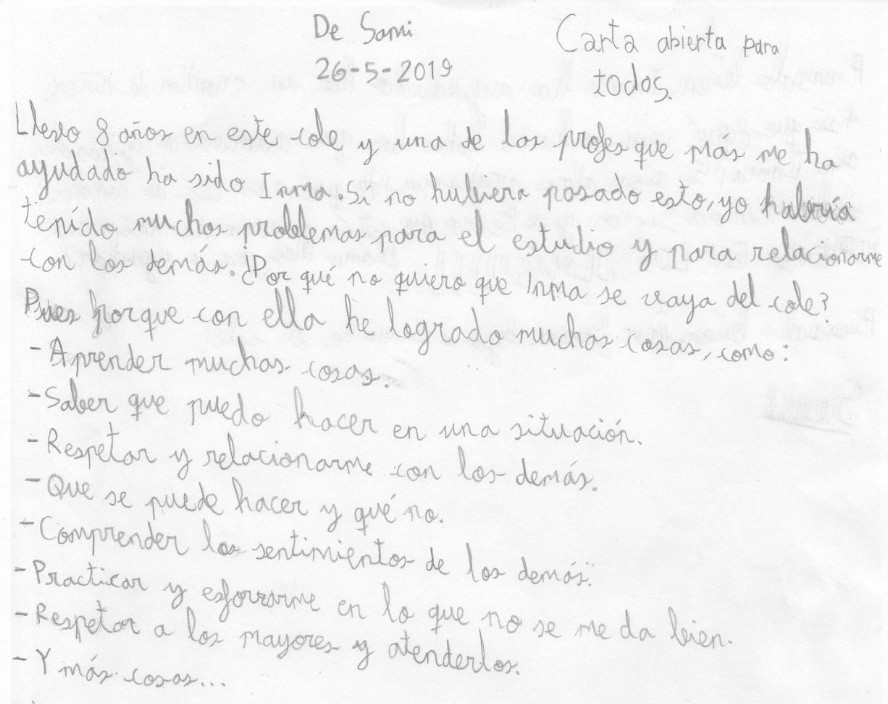 De Sami
Carta abierta para
26-5-2019
todos.
Llevo 8 años en este cole y una de los profes que más me ha
ayudado ha sido Inma. Si no hubiera pasado esto, yo habría
tenido muchos problemas para el estudio y para relacionarme
con los demás. ¿Por qué no quiero que Inma se vaya del cole?
Pues porque con ella he logrado muchas cosas, como:
-Aprender muchas cosas.
-Saber que puedo hacer en una situación.
-Respetar y relacionarme con los demás.
-Que se puede hacer y qué no.
-Comprender los sentimientos de los demás.
-Practicar y esforzarme en lo que no se me da bien.
-Respetar a los mayores y atenderlos.
-Y más cosas...